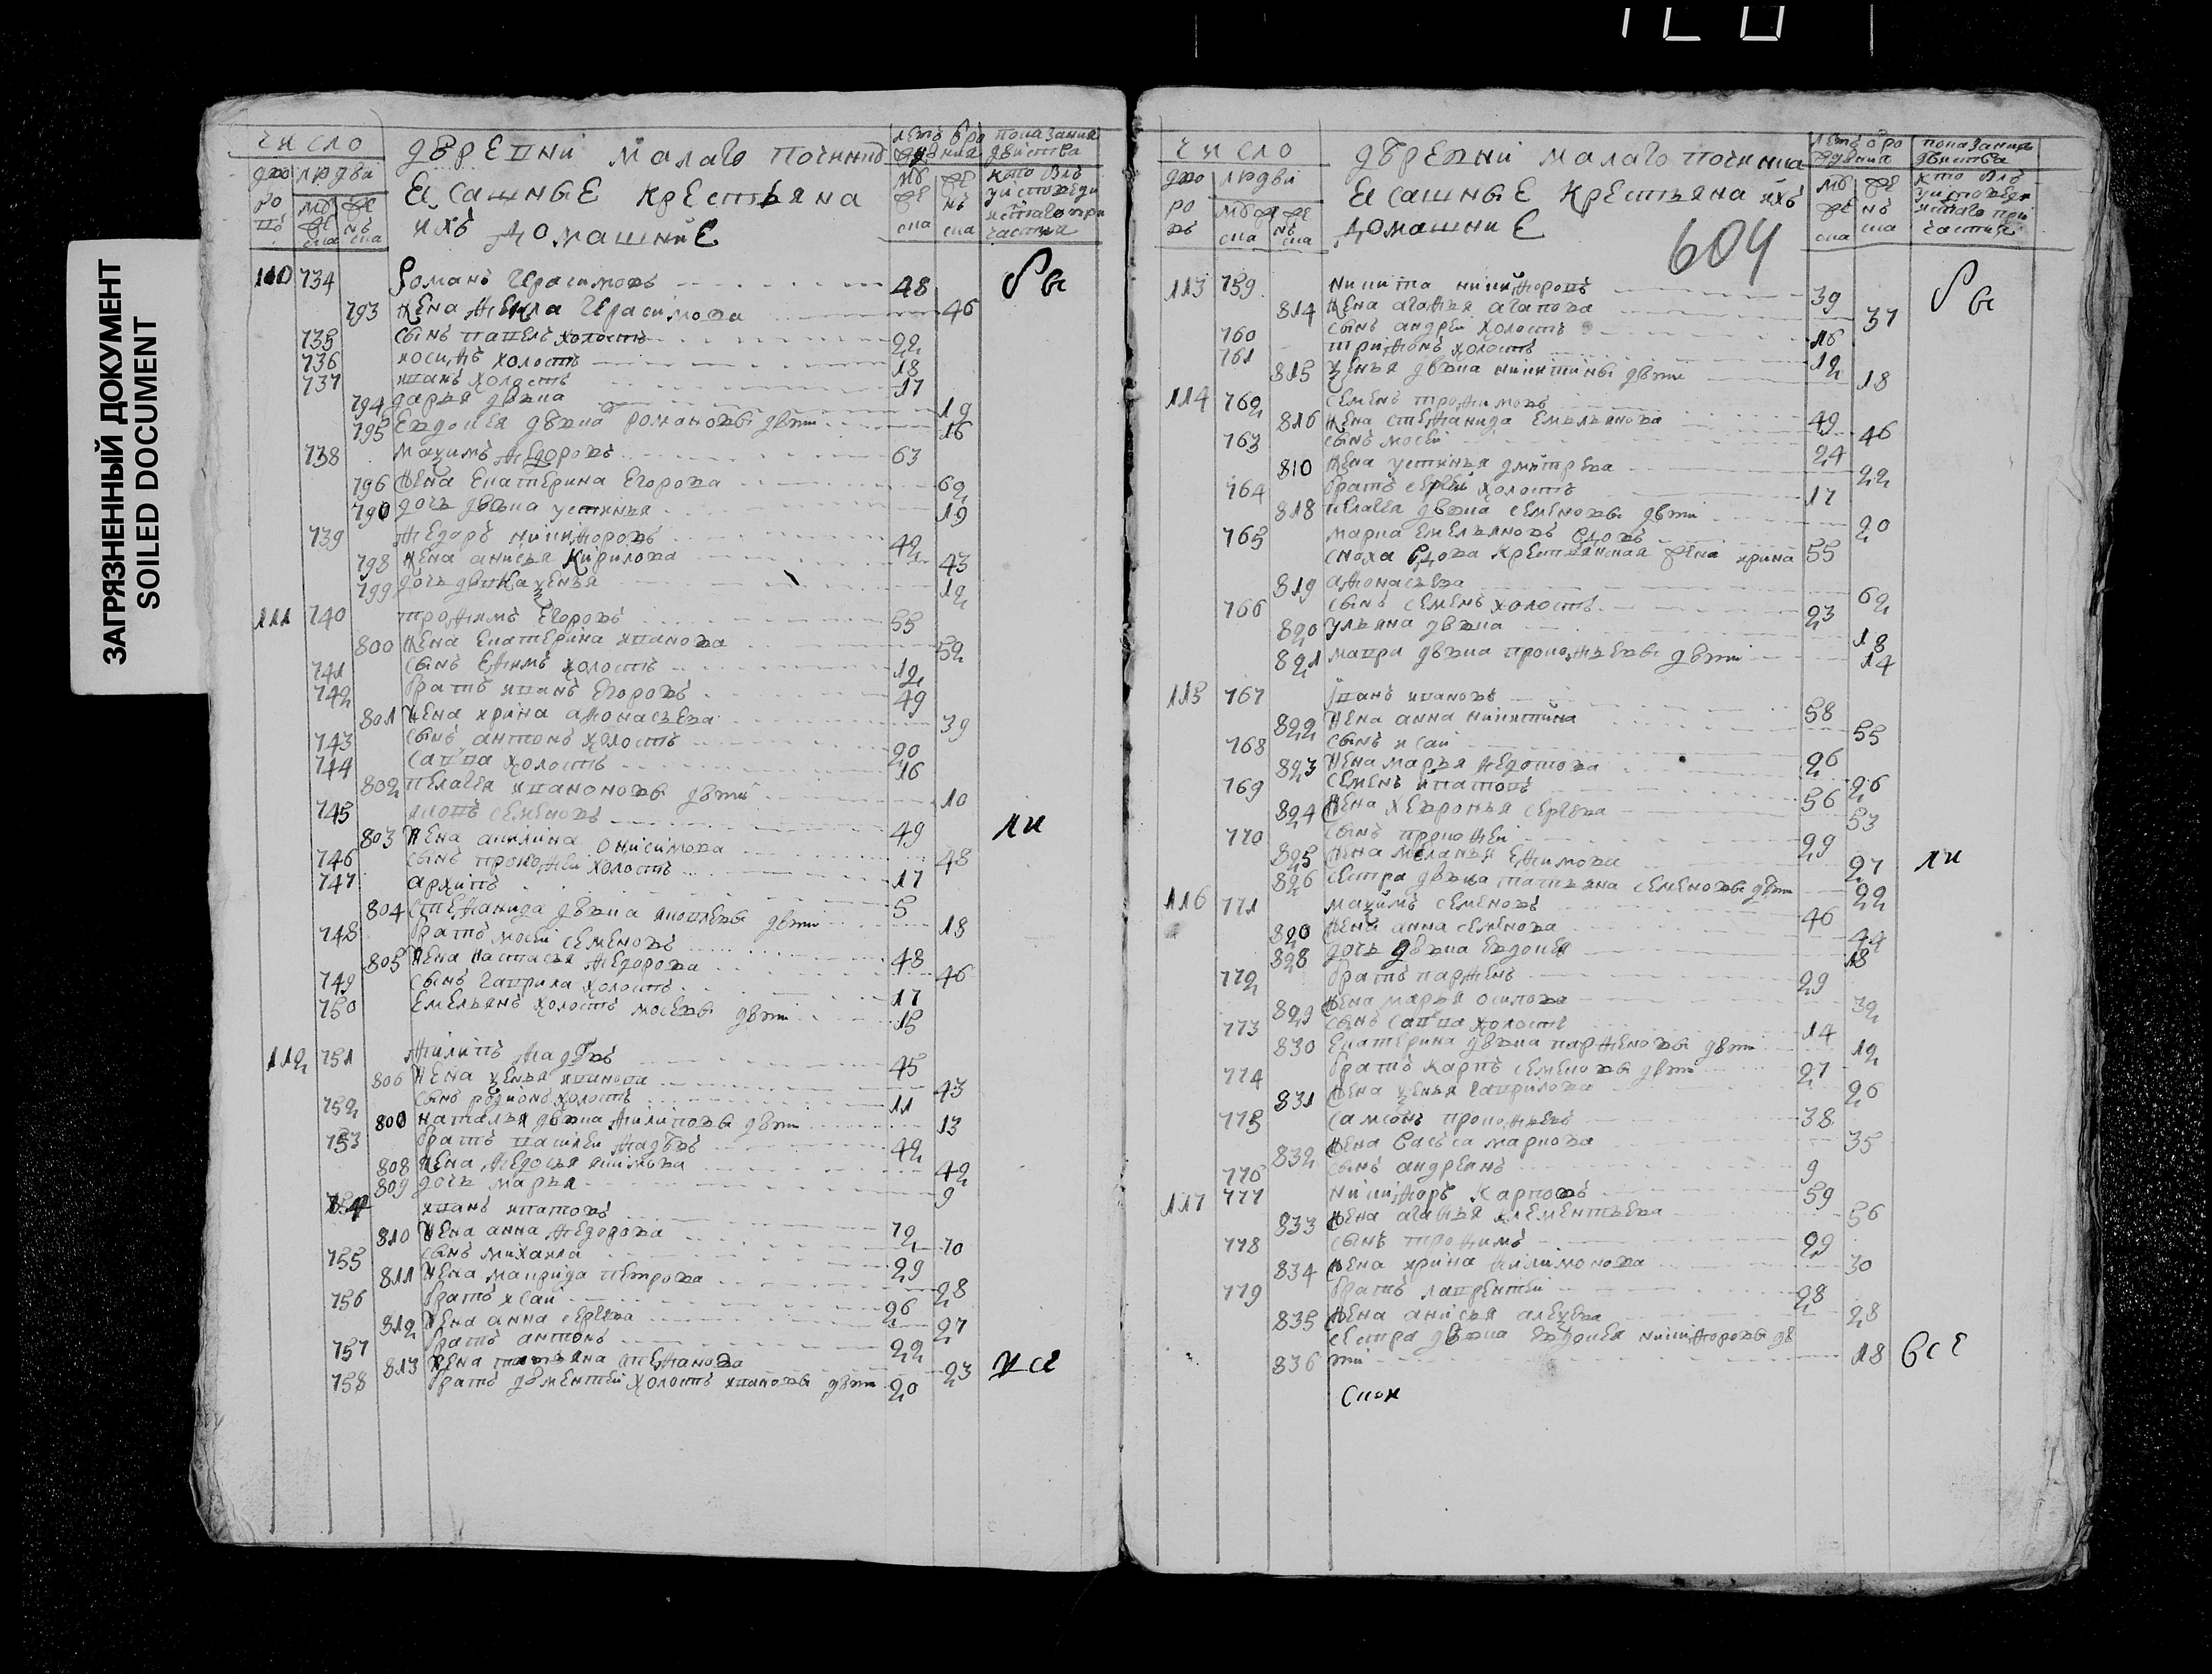 ЗАГРЯЗНЕННЫЙ ДОКУМЕНТ
SOILED DOCUMENT
число
дворовъ людей
мужеска женска
деревни малаго починка
ясашные крестьяна
ихъ домашние
110 734 Романъ Герасимовъ 48
793 жена Фекла Герасимова 46
735 сынъ павелъ холостъ 22
736 иосифъ холостъ 18
737 иванъ холостъ 17
794 дарья двка 19
795 Евдокея двка романовы дети 16
738 Мазимъ Федоровъ 63
796 жена Екатерина Егорова 62
790 дочь двка устинья 19
739 Федоръ никифоровъ 42
798 жена анисья Кирилова 43
799 дочь двка ксенья 12
111 740 трофимъ Егоровъ 55
800 жена Екатерина иванова 52
741 сынъ Ефимъ холостъ 12
742 братъ иванъ Егоровъ 49
801 жена ирина афонасьева 39
743 сынъ антонъ холостъ 20
744 савва холостъ 16
802 пелагея ивановы дети 10
745 яковъ семеновъ 49
803 жена акилина онисимова 48
746 сынъ прокофей холостъ 17
747 архипъ 5
804 стефанида двка яковлевы дети 18
748 братъ мосей семеновъ 48
805 жена настасья Федорова 46
749 сынъ гаврила холостъ 17
750 Емельянъ холостъ мосеевы дети 15
112 751 Филипъ Фадевъ 45
806 жена ксенья иванова 43
752 сынъ родионъ холостъ 11
800 наталья двка филиповы дети 13
753 братъ василей Фадевъ 42
808 жена Федосья якимова 42
809 дочь марья 9
754 иванъ ипатовъ 72
810 жена анна Федорова 70
755 сынъ михаила 29
811 жена маврида петрова 28
756 братъ исай 26
812 жена анна сергеева 27
757 братъ антонъ 22
813 жена татьяна стефанова 23
758 братъ дементей холостъ ивановы дети 20
все
число
дворовъ людей
деревни малаго починка
ясашные крестьяна ихъ
домашние
604
113 759 никита никифоровъ 39
814 жена агафья агапова 37
760 сынъ андрей холостъ 16
761 трифонъ холостъ 12
815 ксенья двка никитины дети 18
114 762 семенъ трофимовъ 49
816 жена стефанида Емельянова 46
763 сынъ мосей 24
810 жена устинья дмитрева 22
764 братъ сергей холостъ 17
818 пелагея двка семеновы дети 20
765 марка емельяновъ вдовъ 55
сноха вдова крестьянская жена ирина
819 афонасьева 62
766 сынъ семенъ холостъ 23
820 ульяна двка 18
821 мавра двка прокофьевы дети 14
115 767 иванъ ивановъ 58
822 жена анна никитина 55
768 сынъ исай 26
823 жена марья Федотова 26
769 семенъ ипатовъ 56
824 жена хевронья сергеева 53
770 сынъ прокофей 29
825 жена меланья Ефимова 27
826 сестра двка татьяна семеновы дети 22
116 771 мазимъ семеновъ 46
820 жена анна семенова 44
828 дочь двка евдокея 18
772 братъ парфенъ 29
829 жена марья осипова 32
773 сынъ савва холостъ 14
830 Екатерина двка парфеновы дети 12
774 братъ карпъ семеновы дети 27
831 жена ксенья гаврилова 26
775 самсонъ прокофьевъ 38
832 жена васьса маркова 35
776 сынъ андреанъ 9
117 777 никифоръ Карповъ 59
833 жена агафья клементьева 56
778 сынъ трофимъ 29
834 жена ирина филимонова 30
779 братъ лаврентей 28
835 жена анисья алексеева 28
сестра двка евдокея никифоровы де
836 ти 18
все